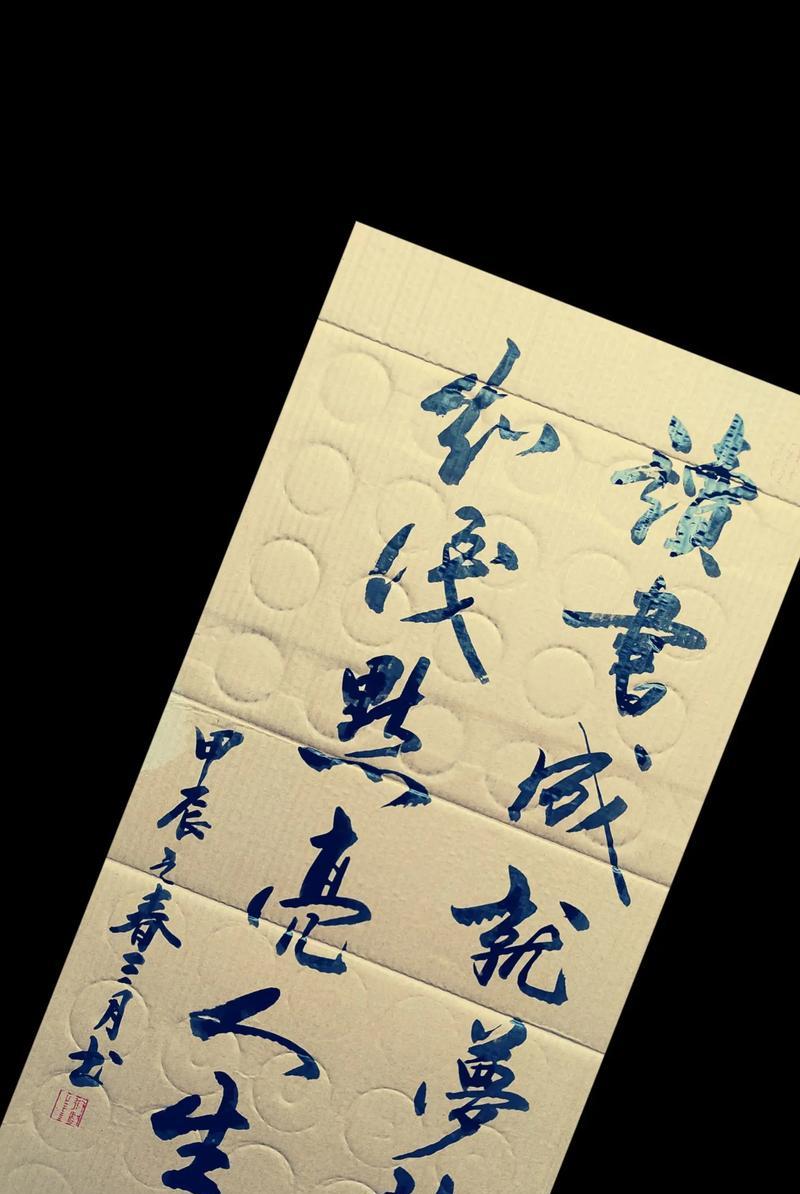 讀書成就夢
知識點亮人生
甲辰之春三月书